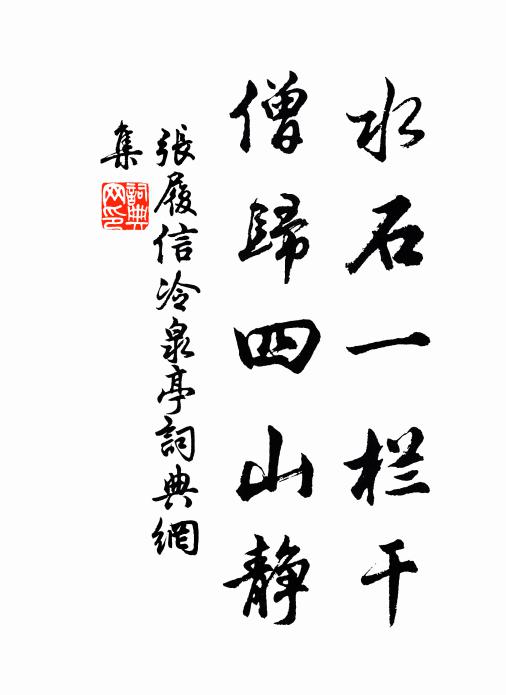 水石一栏干
僧歸四山静
張履信冷泉亭詞典網
集
詞典网印